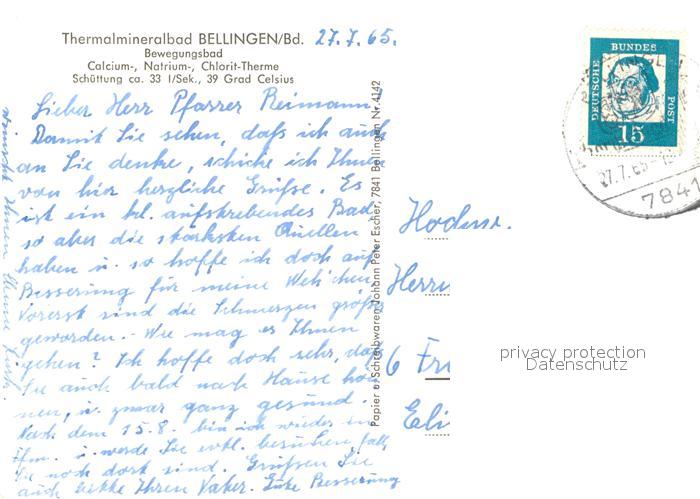 Thermalmineralbad BELLINGEN/Bd. 27.7.65.
Bewegungsbad
Calcium-, Natrium-, Chlorit-Therme
Schüttung ca. 33 l/Sek., 39 Grad Celsius
Lieber Herr Pfarrer Reimann
Damit Sie sehen, daß ich auch
an Sie denke, schicke ich Ihnen
von hier herzliche Grüße. Es
ist ein kl. aufstrebendes Bad
so aber die stärksten Quellen
haben u. so hoffe ich doch auf
Besserung für meine Weh'chen
Vorerst sind die Schmerzen größer
geworden. - Wie mag es Ihnen
gehen? Ich hoffe doch sehr, daß
Sie auch bald nach Hause kön
nen, u. zwar ganz gesund.
Nach dem 15.8. bin ich wieder in
Ffm. u. werde Sie evtl. besuchen, falls
Sie noch dort sind. Grüßen Sie
auch bitte Ihren Vater. Gute Besserung
wünscht Ihnen
Papier u. Schreibwaren Johann Peter Escher, 7841 Bellingen Nr. 4142
DEUTSCHE
BUNDES
POST
15
27.7.65
7841
Hochw.
Herrn
6 Fr
Eli
privacy protection
Datenschutz